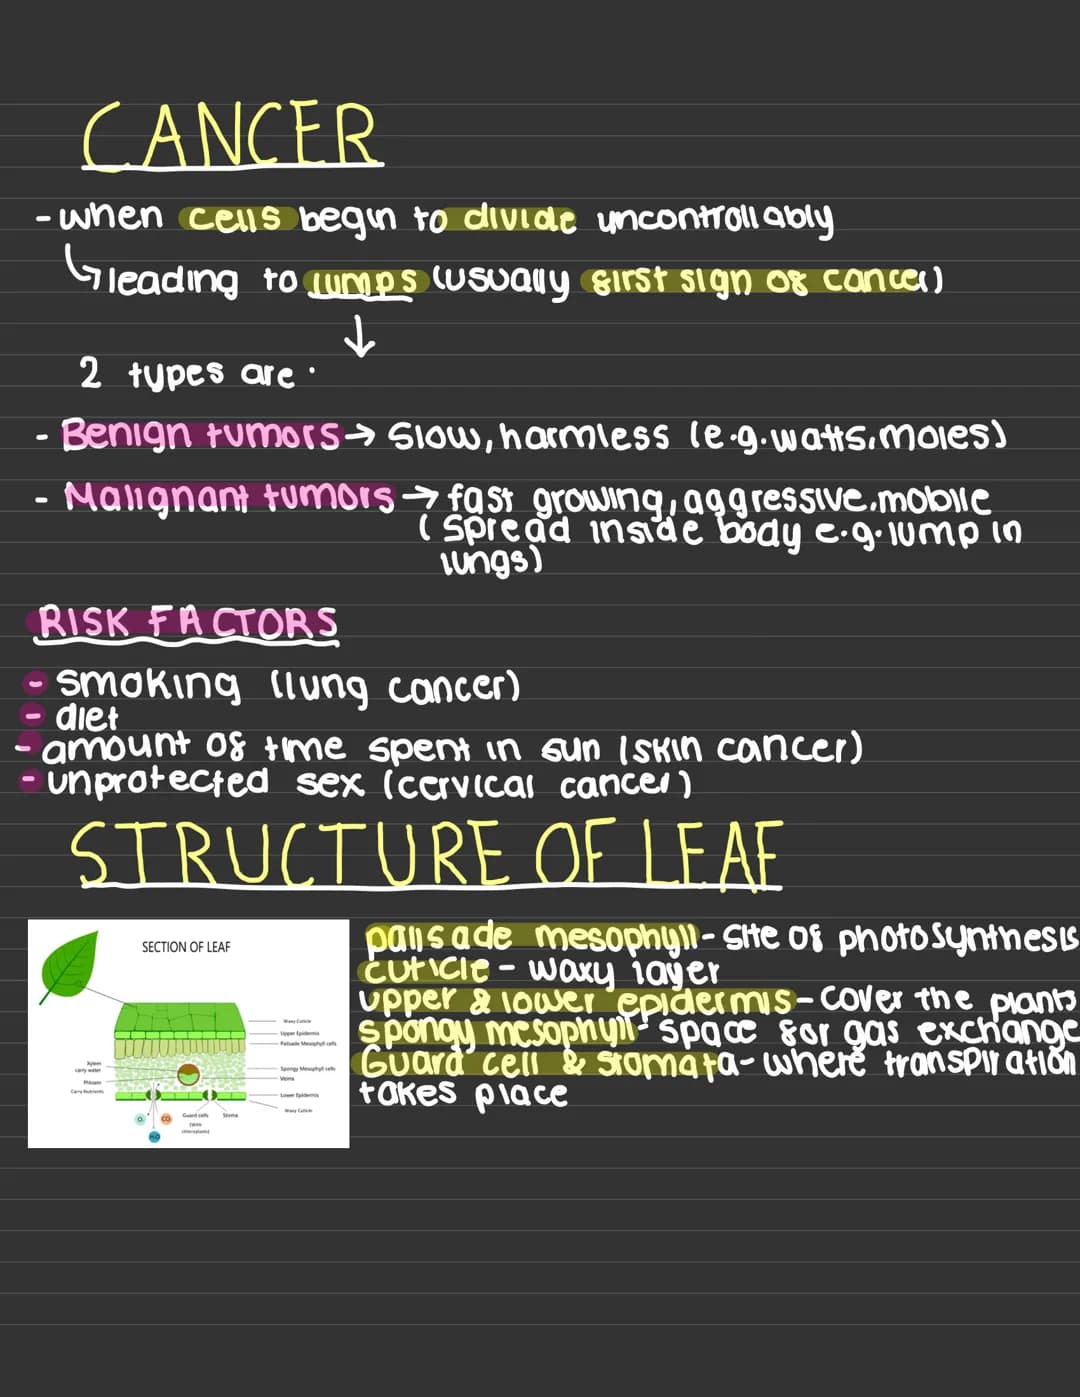 CANCER
- when cells begin to divide uncontrollably
leading to lumps (usually first sign of cancer)
2 types are ·
- Benign tumors → slow, harmless (e.g. watts, moles)
- Malignant tumors → fast growing, aggressive, mobile
(spread inside body e.g. lump in
lungs)
RISK FACTORS
- smoking (lung cancer)
- diet
- amount of time spent in sun (skin cancer)
- unprotected sex (cervical cancer)
STRUCTURE OF LEAF
palisade mesophyll - site of photosynthesis
cuticle - waxy layer
upper & lower epidermis - cover the plants
spongy mesophyll - space for gas exchange
Guard cell & stomata - where transpiration
takes place
SECTION OF LEAF
Waxy Cuticle
Upper Epidermis
Palisade Mesophyll cells
Xylem
carry water
Spongy Mesophyll cells
Veins
Phloem
Carry Nutrients
Lower Epidermis
Waxy Cuticle
Guard cells
(With
chloroplasts)
Stoma
O₂
CO₂
H₂O